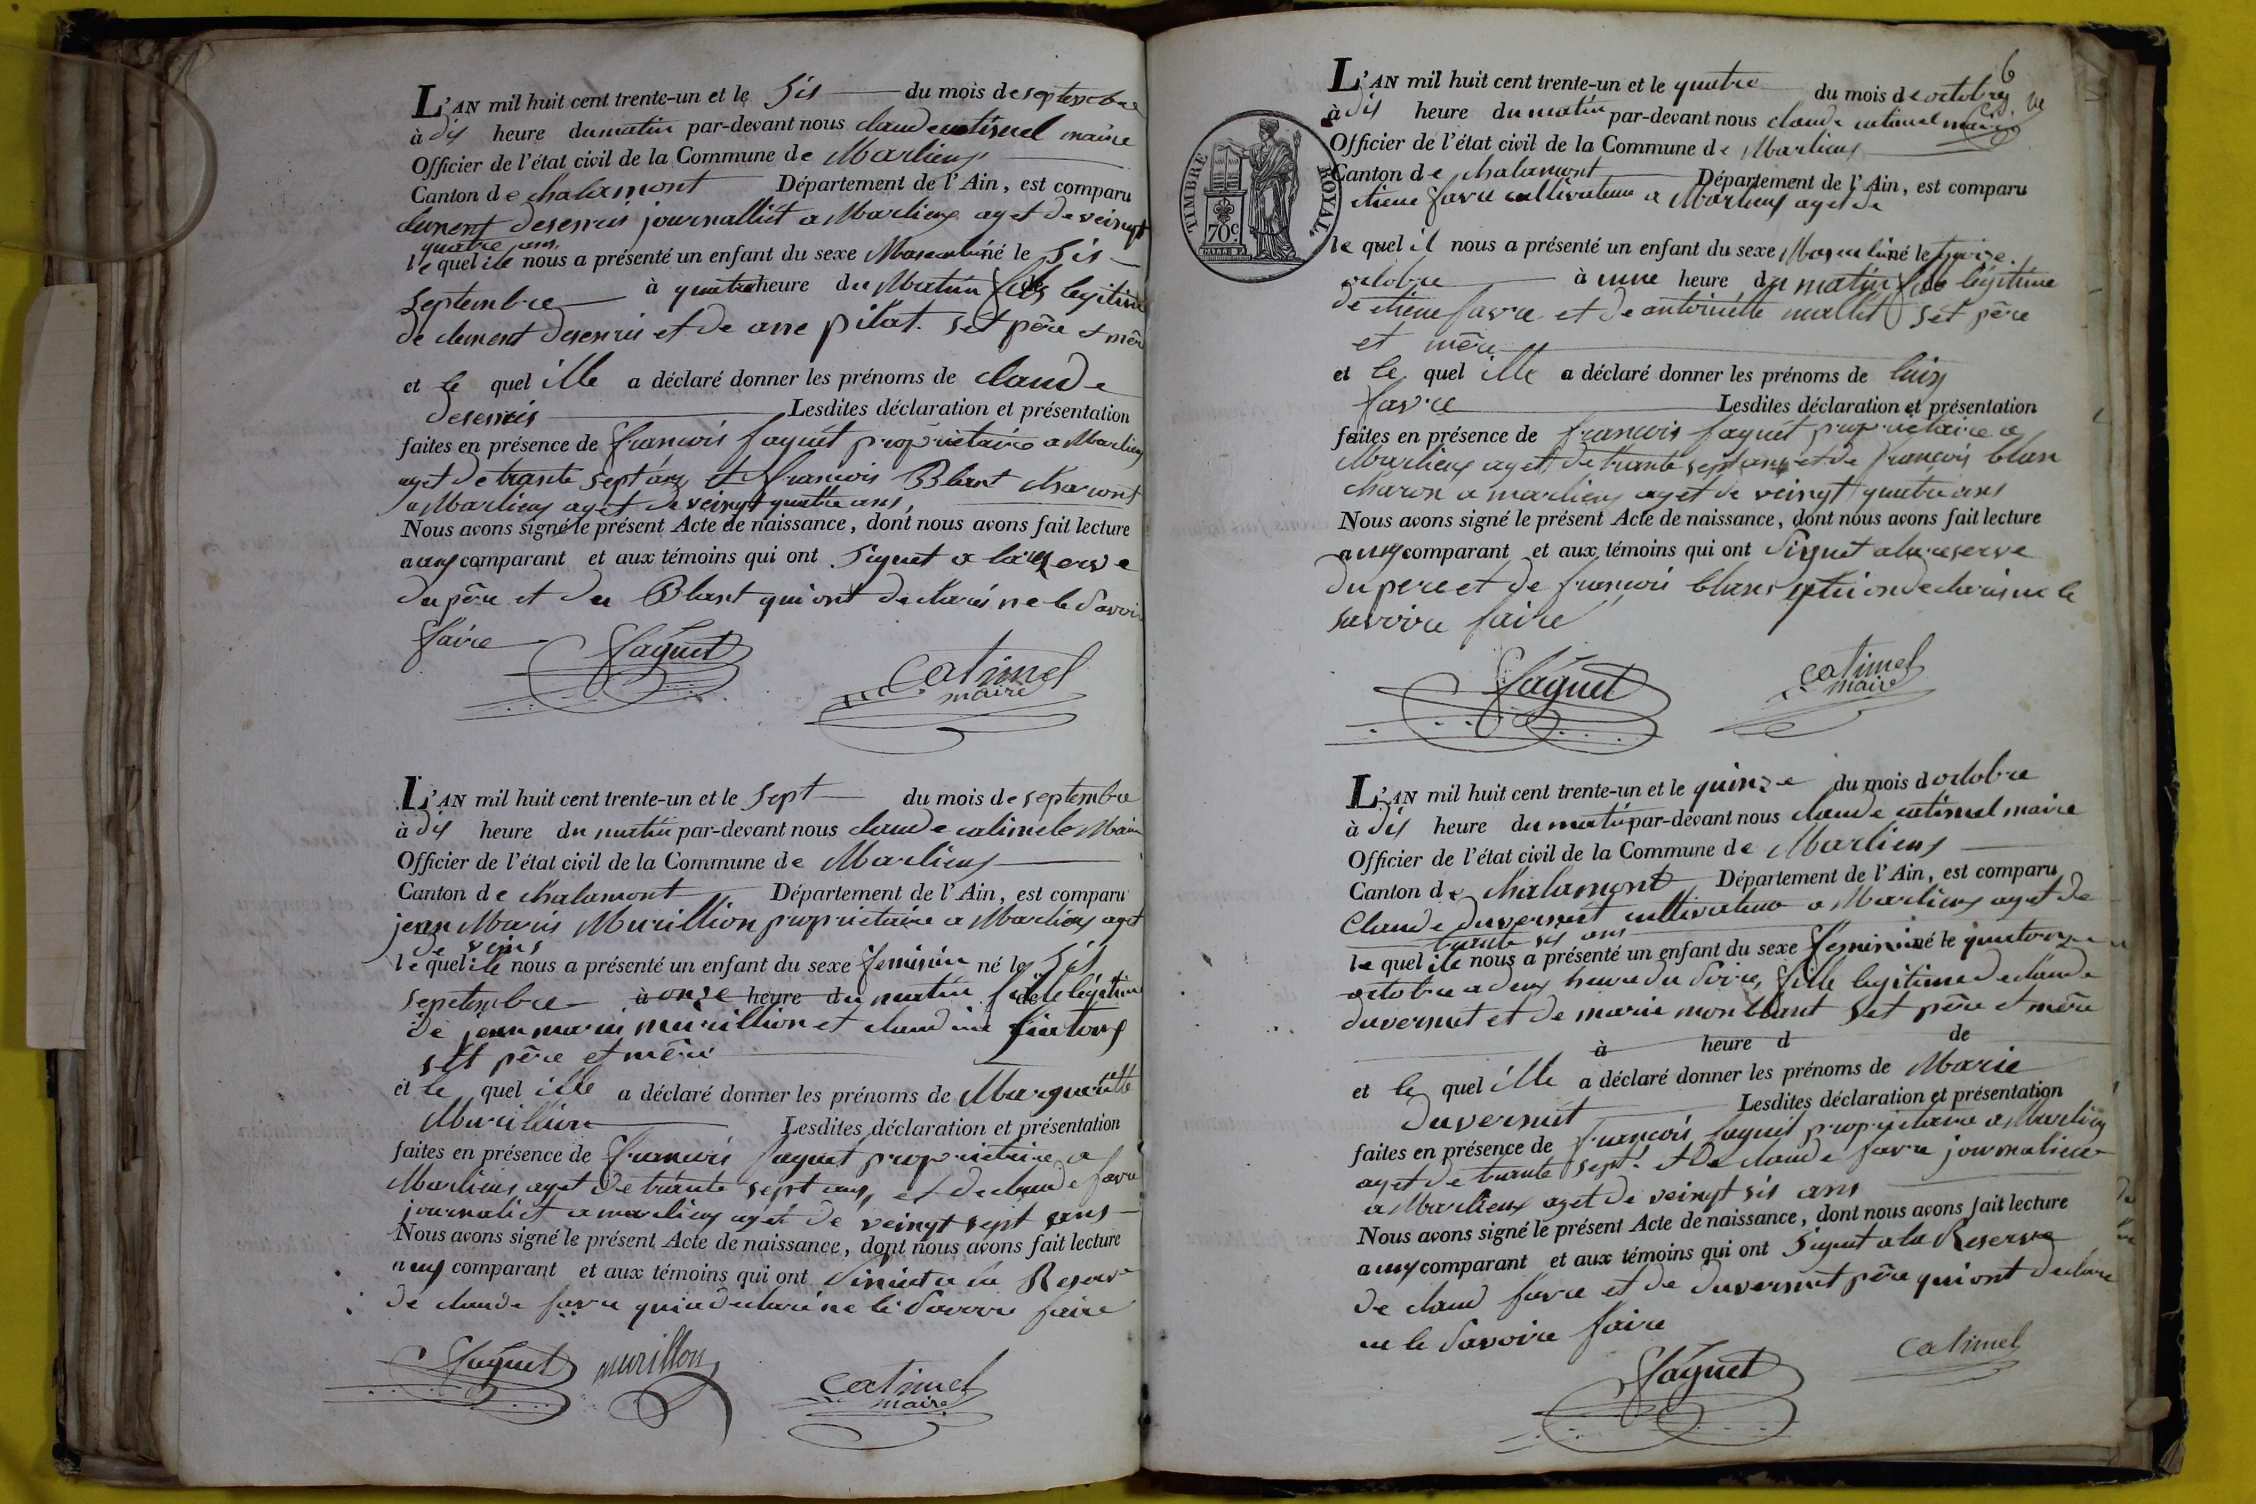 L'AN mil huit cent trente-un et le sis du mois de septembre
à dis heure du matin par-devant nous claude catimel maire
Officier de l'état civil de la Commune de Marlieux
Canton de chalamont Département de l'Ain, est comparu
clement desenris journalliet a Marlieux aget de veingt
quatre ans
le quel ile nous a présenté un enfant du sexe Masculin né le sis
septembre à quatre heure du Matin fils legitime
de clement desenris et de anne pilat set père et mère
et le quel ille a déclaré donner les prénoms de claude
desenris Lesdites déclaration et présentation
faites en présence de francois faquet proprietaire a Marlieux
aget de trante sept ans et francois Blant charont
a Marlieux aget de veingt quattre ans,
Nous avons signé le présent Acte de naissance, dont nous avons fait lecture
aux comparant et aux témoins qui ont signet a la reserve
du père et du Blant qui ont declarés ne le savoir
faire
faquet catimel
maire
L'AN mil huit cent trente-un et le sept du mois de septembre
à dis heure du matin par-devant nous claude catimel Maire
Officier de l'état civil de la Commune de Marlieux
Canton de chalamont Département de l'Ain, est comparu
jean Marie Murillion proprietaire a Marlieux aget
de
le quel ile nous a présenté un enfant du sexe feminin né le sis
sepetembre à onze heure du matin fille de légitime
de jean marie murillion et claudine
set père et mère
et le quel ille a déclaré donner les prénoms de Margueritte
Murillion Lesdites déclaration et présentation
faites en présence de francois faquet proprietaire a
Marlieux aget de trante sept ans, et de claude favre
journaliet a marlieux aget de veingt sept ans
Nous avons signé le présent Acte de naissance, dont nous avons fait lecture
aux comparant et aux témoins qui ont a la Reserve
de claude favre qui a declaré ne le savoire faire
faquet murillon catimel
maire
6
L'AN mil huit cent trente-un et le quatre du mois de octobre
à dis heure du matin par-devant nous claude catimel maire
Officier de l'état civil de la Commune de Marlieux
Canton de chalamont Département de l'Ain, est comparu
etiene favre cultivateur a Marlieux aget de
le quel il nous a présenté un enfant du sexe Masculin né le
octobre à une heure du matin fils de légitime
de etiene favre et de antoinette mallet set père
et mère
et le quel ille a déclaré donner les prénoms de
favre Lesdites déclaration et présentation
faites en présence de francois faquet proprietaire a
Marlieux aget de trante sept ans et de francois blan
charon a marlieux aget de veingt quatre ans
Nous avons signé le présent Acte de naissance, dont nous avons fait lecture
aux comparant et aux témoins qui ont signet a la reserve
du pere et de francois blans declaris ne le
savoire faire
TIMBRE ROYAL
70c
faquet catimel
maire
L'AN mil huit cent trente-un et le quinze du mois d octobre
à dis heure du matin par-devant nous claude catimel maire
Officier de l'état civil de la Commune de Marlieux
Canton de chalamont Département de l'Ain, est comparu
Claude duvernet cultivateur a Marlieux aget de
trante sis ans
le quel ile nous a présenté un enfant du sexe feminin né le quatorze
octobre a deux heure du soire, fille legitime de claude
duvernet et de marie monblant set père et mère
à heure d de
et le quel ille a déclaré donner les prénoms de Marie
duvernet Lesdites déclaration et présentation
faites en présence de francois faquet proprietaire a Marlieux
aget de trante sept et de claude favre journalier
a Marlieux aget de veingt sis ans
Nous avons signé le présent Acte de naissance, dont nous avons fait lecture
aux comparant et aux témoins qui ont signet a la Reserve
de claud favre et de duvernet père qui ont declare
ne le savoire faire
faquet catimel